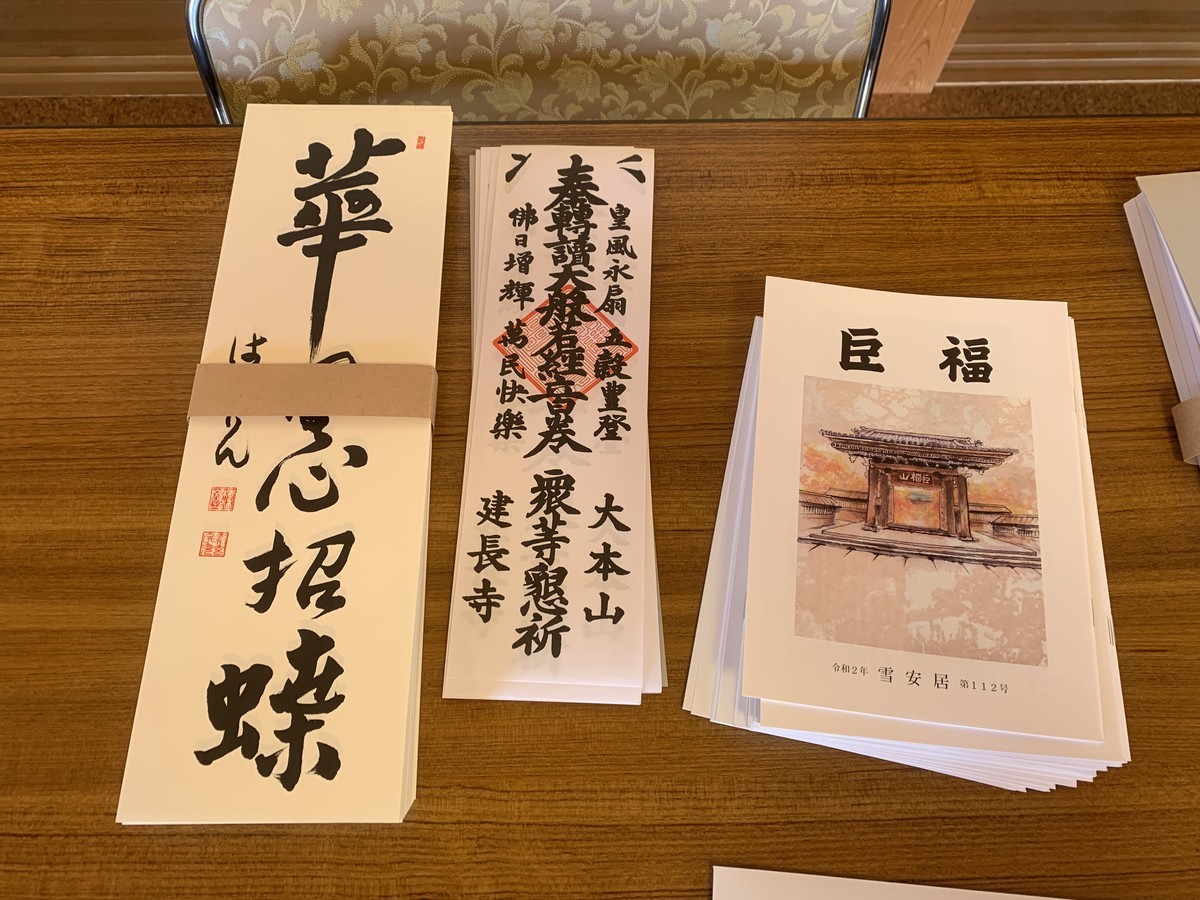 華
心招蝶
は
りん
皇風永扇 五穀豊登
大本山
奉轉讀大般若經
巻 衆等懇祈
佛日増輝 萬民快樂
建長寺
巨 福
山福巨
令和2年 雪安居 第112号